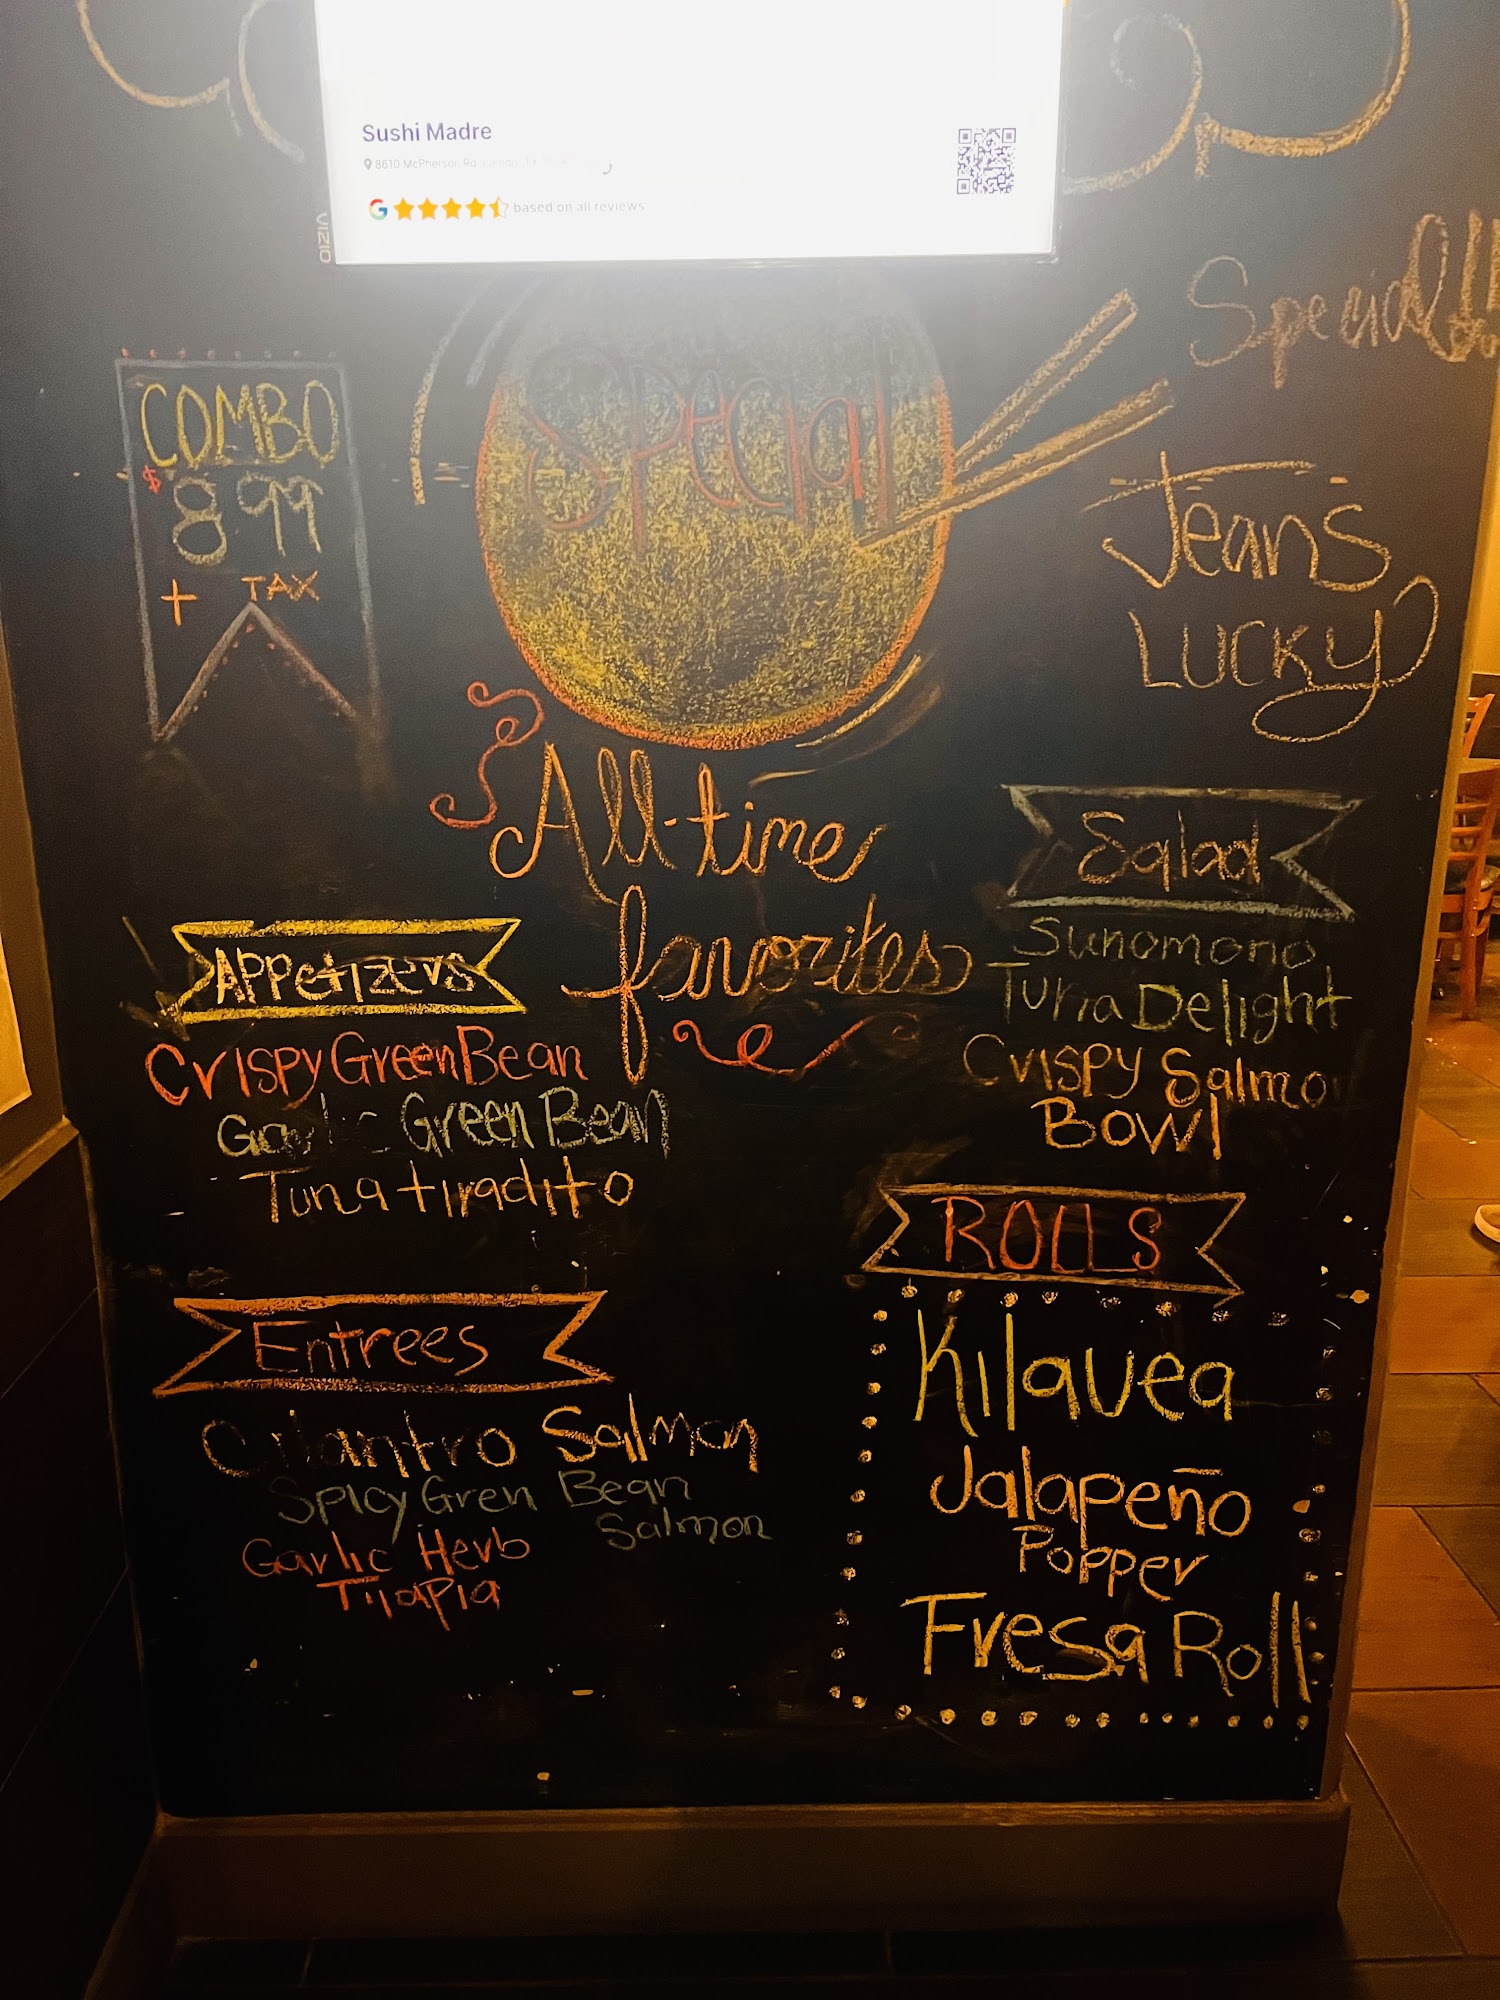 Sushi Madre
8610 McPherson Rd
based on all reviews
Special!!
COMBO
$8.99
+ TAX
Special
Jeans
LUCKY
All-time
favorites
Appetizers
Crispy Green Bean
Garlic Green Bean
Tuna tiradito
Entrees
Cilantro Salmon
Spicy Gren Bean
Salmon
Garlic Herb
Tilapia
Salad
Sunomono
Tuna Delight
Crispy Salmo
Bowl
ROLLS
Kilauea
Jalapeño
Popper
Fresa Roll